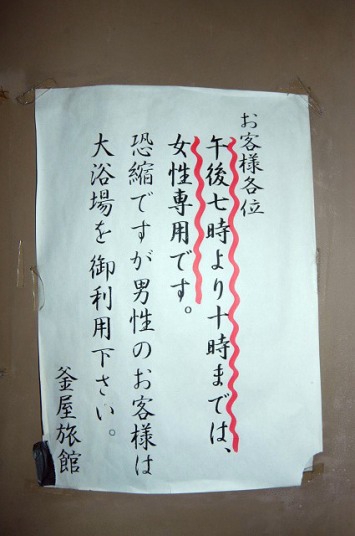 お客様各位
午後七時より十時までは、
女性専用です。
恐縮ですが男性のお客様は
大浴場を御利用下さい。
釜屋旅館